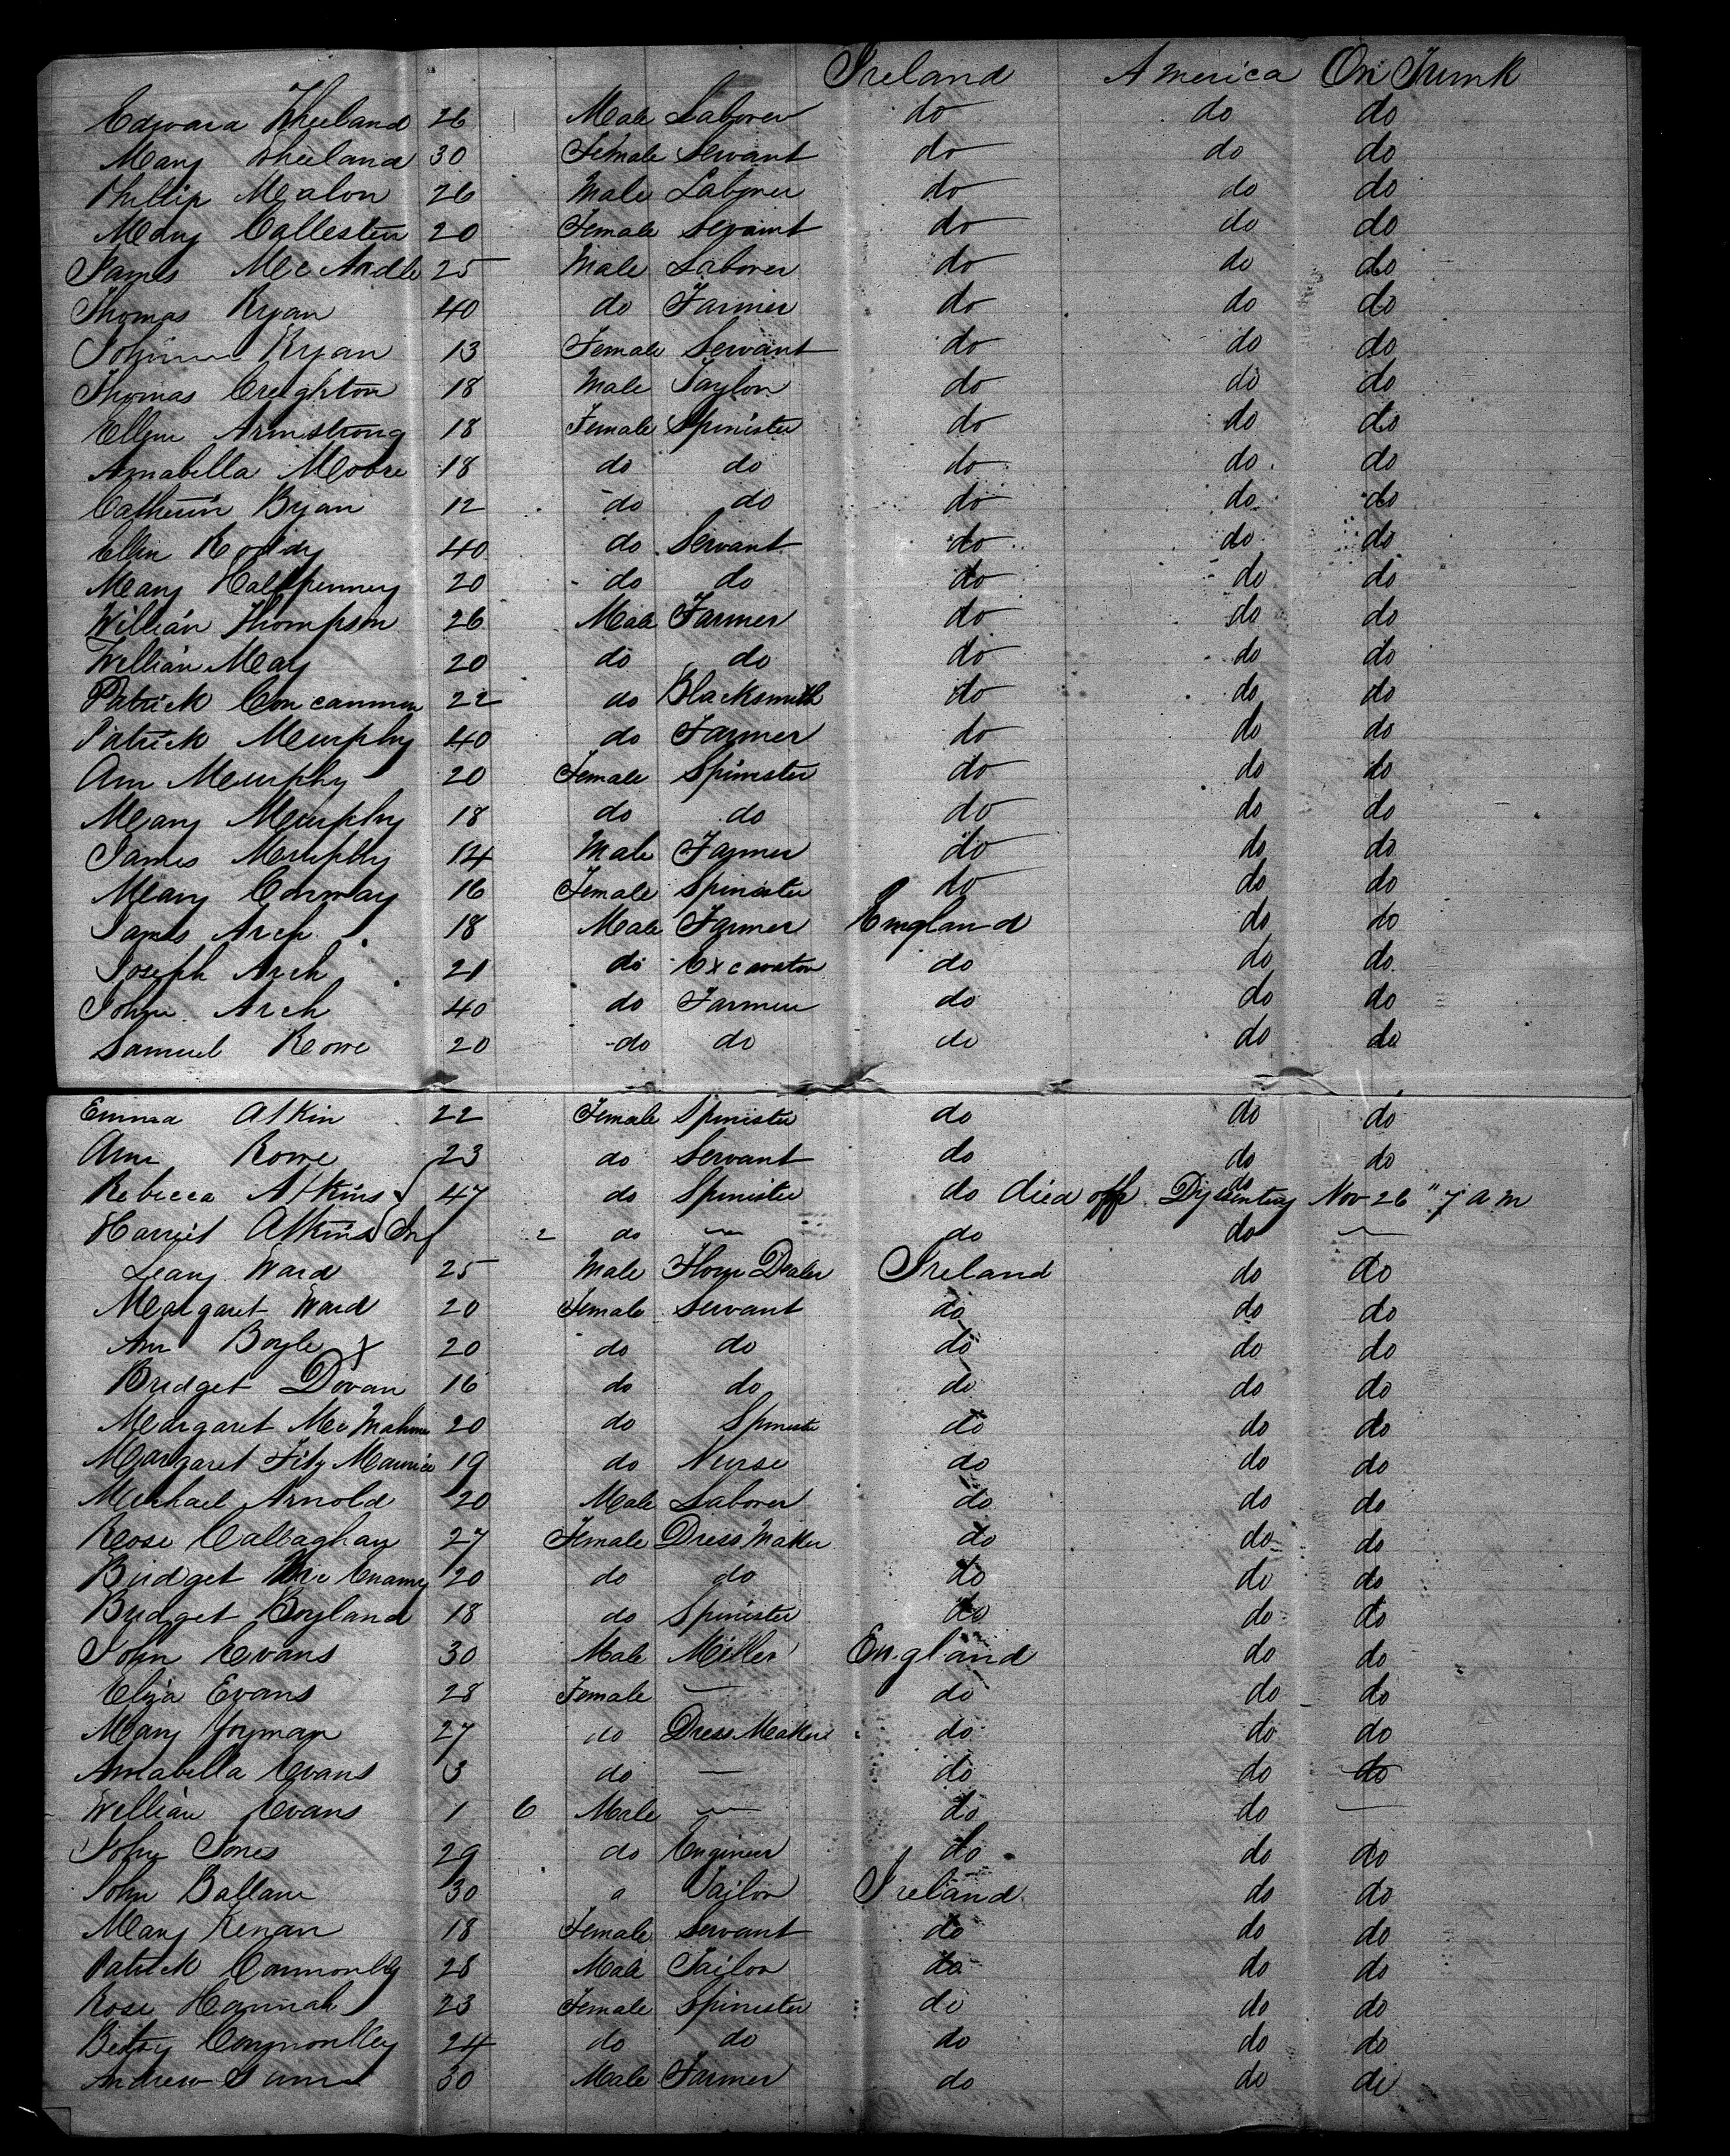 Ireland America On Trunk
Edward Wheeland 26 Male Laborer do do do
Mary Wheeland 30 Female Servant do do do
Phillip Malon 26 Male Laborer do do do
Mary 20 Female Servant do do do
James Mc Ardle 25 Male Laborer do do do
Thomas Ryan 40 do Farmer do do do
Ryan 13 Female Servant do do do
Thomas Creighton 18 Male Taylor do do do
Ellen Armstrong 18 Female Spinister do do do
Annabella Moore 18 do do do do do
Catherin Ryan 12 do do do do do
Ellen Roddy 40 do Servant do do do
Mary Hallpenney 20 do do do do do
William Thompson 26 Male Farmer do do do
William May 20 do do do do do
Patrick Concannon 22 do Blacksmith do do do
Patrick Murphy 40 do Farmer do do do
Ann Murphy 20 Female Spinister do do do
Mary Murphy 18 do do do do do
James Murphy 14 Male Farmer do do do
Mary Conway 16 Female Spinister do do do
James Arch 18 Male Farmer England do do
Joseph Arch 21 do Excavator do do do
John Arch 40 do Farmer do do do
Samuel Rowe 20 do do do do do
Emma Atkin 22 Female Spinister do do do
Ann Rowe 23 do Servant do do do
Rebecca Atkins 47 do Spinister do do died off Dysentery Nov 26" 7 a m
Harriet Atkins Inf 2 do — do do —
Ward 25 Male Dealer Ireland do do
Margaret Ward 20 Female Servant do do do
Ann Boyle x 20 do do do do do
Bridget Dovan 16 do do do do do
Margaret Mc Mahon 20 do Spinister do do do
Margaret Fitz Maurice 19 do Nurse do do do
Michael Arnold 20 Male Laborer do do do
Rose Callaghan 27 Female Dress Maker do do do
Bridget Mc Enamy 20 do do do do do
Bridget Boyland 18 do Spinister do do do
John Evans 30 Male Miller England do do
Eliza Evans 28 Female — do do do
Mary 27 do Dress Maker do do do
Annabella Evans 3 do — do do do
William Evans 1 6 Male — do do —
John Jones 29 do Engineer do do do
John Ballam 30 Tailor Ireland do do
Mary Kenan 18 Female Servant do do do
Patrick Connonlly 28 Male Tailor do do do
Rose Hannah 23 Female Spinister do do do
Betsy Connonlley 24 do do do do do
Andrew 30 Male Farmer do do do